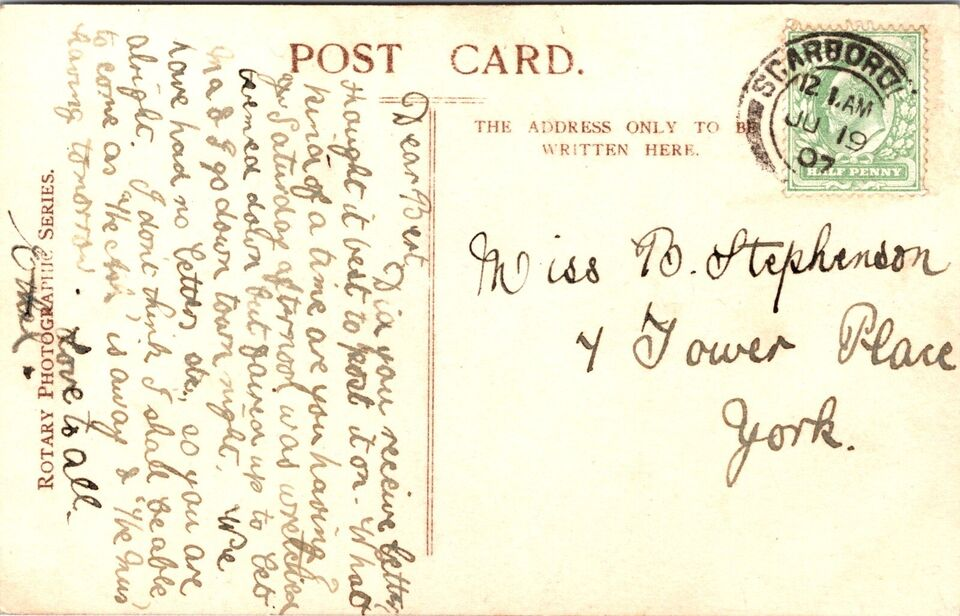 POST CARD.
THE ADDRESS ONLY TO BE
WRITTEN HERE.
SCARBORO'
12 1.AM
JU 19
07
HALF PENNY
Miss B. Stephenson
4 Tower Place
York.
Dear Bert
Did you receive letter,
thought it best to post it on. What
kind of a time are you having?
Saturday afternoon was wretched
seemed down but faired up to let
Ma & I go down town night. We
have had no letters etc, so you are
alright. I don't think I shall be able
to come as "the " is away & "the
having tomorrow. Love to all.
ROTARY PHOTOGRAPHIC SERIES.